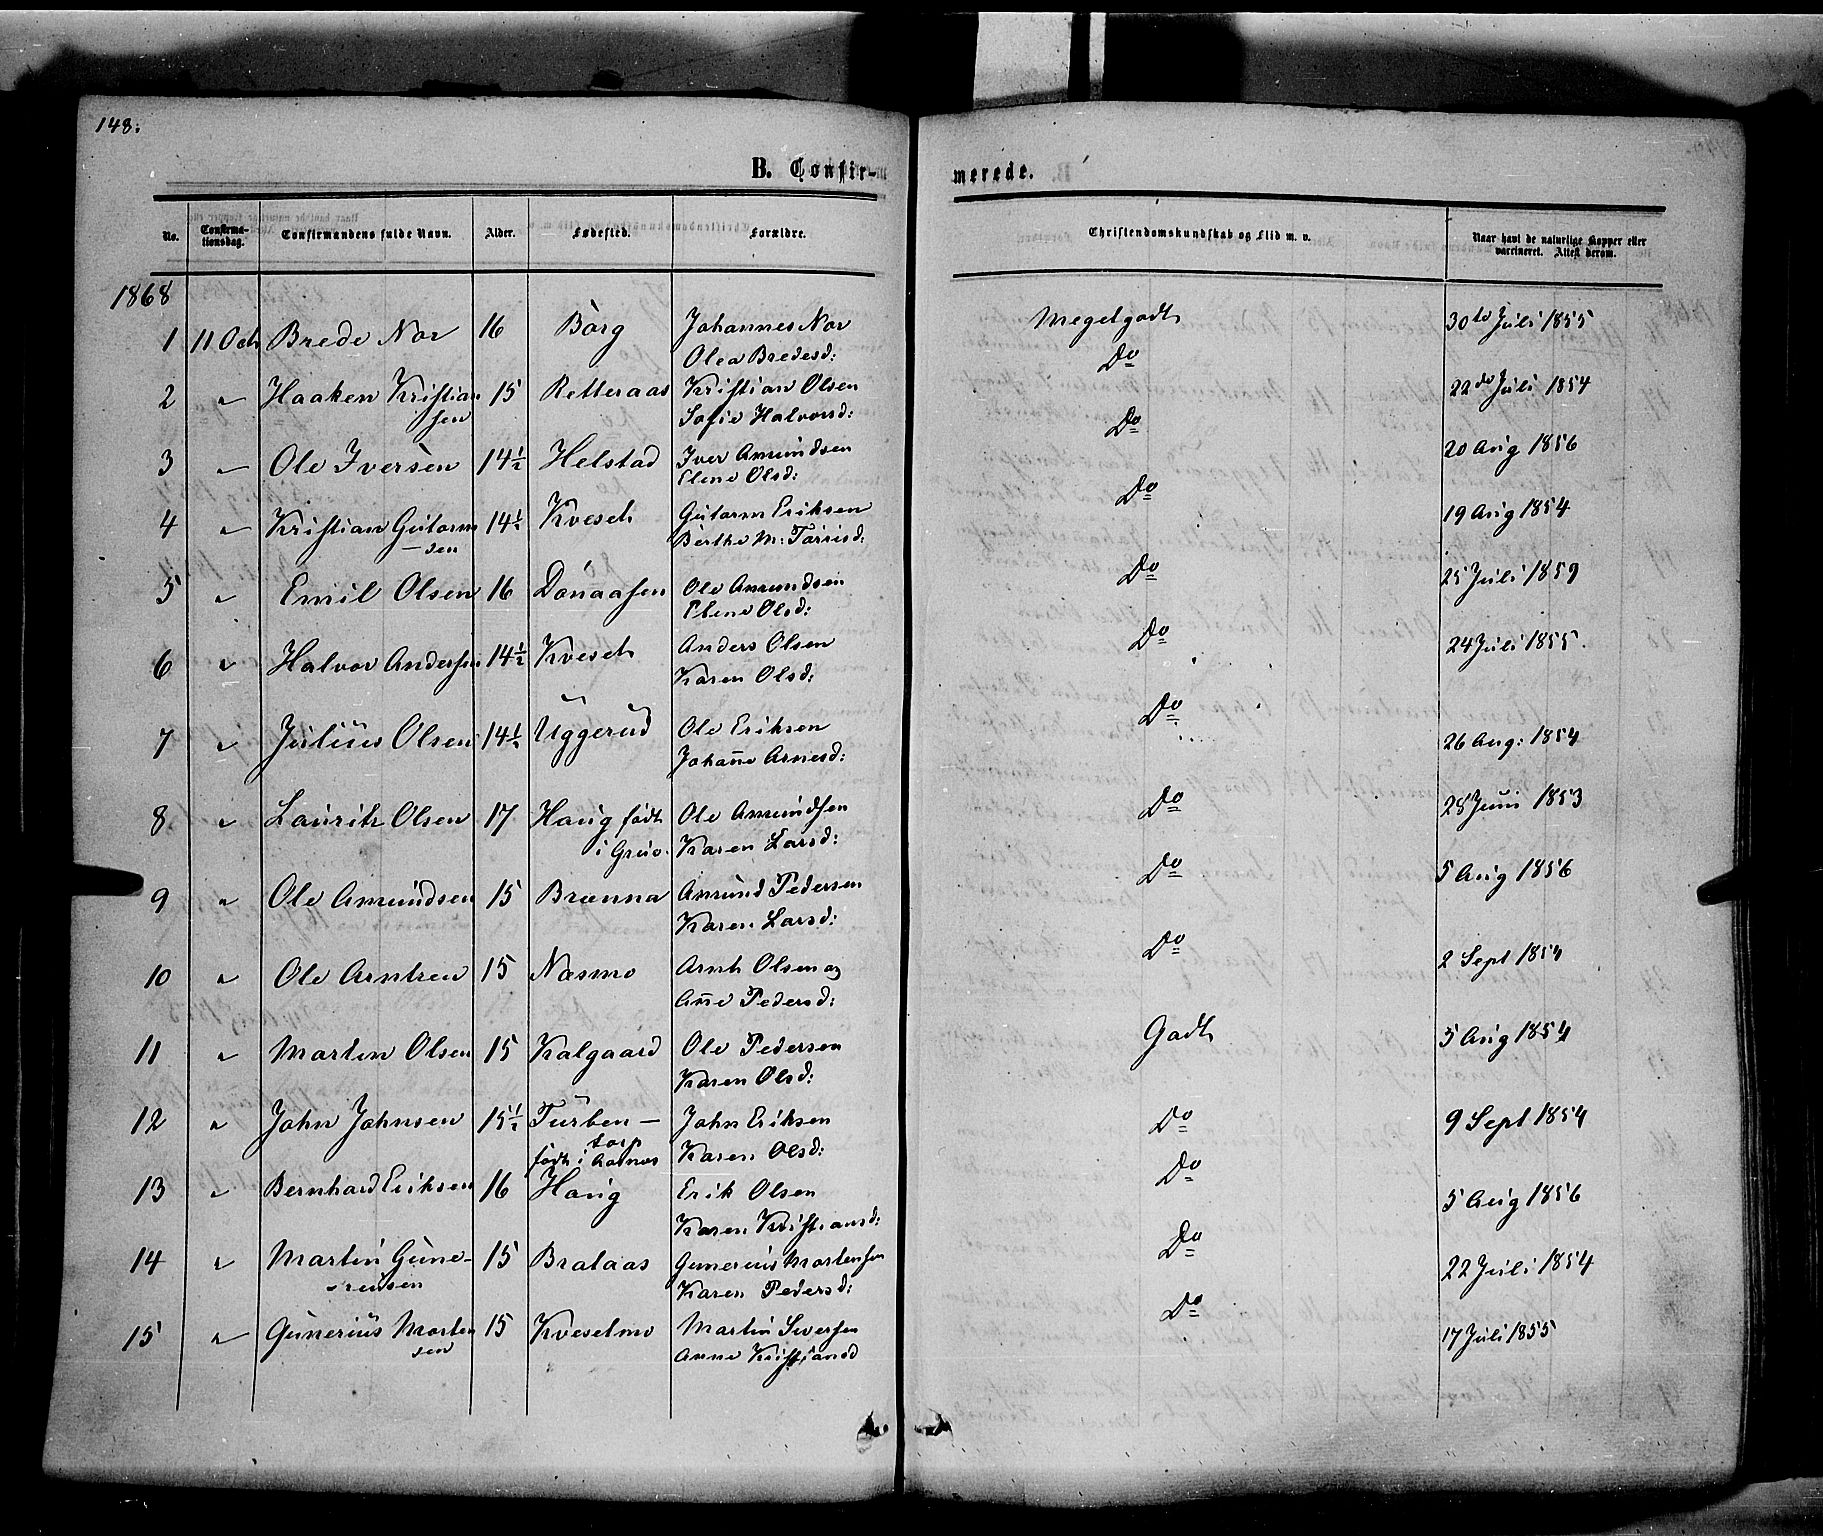 148.
B. Confir- merede.
No. Confirma-tionsdag. Confirmandens fulde Navn. Alder. Fødested. Forældre. Christendomskundskab og Flid m. v. Naar havt de naturlige Kopper eller vaccineret. Attest derom.
1868
1 11 Oct Brede Nor 16 Borg Johannes Nor Megetgodt 30te Juli 1855
Olea Bredesd:
2 " Haaken Kristian 15 Retteraas Kristian Olsen Do 22de Juli 1854
sen Sofie Halvorsd:
3 " Ole Iversen 14½ Helstad Iver Amundsen Do 20 Aug 1856
Elene Olsd:
4 " Kristian Gutorm 14½ Kveset Gutorm Eriksen Do 19 Aug 1854
-sen Berthe M: Torrisd:
5 " Emil Olsen 16 Donaasen Ole Amundsen Do 25 Juli 1859
Elene Olsd:
6 " Halvor Andersen 14½ Kveset Anders Olsen Do 24 Juli 1855.
Karen Olsd:
7 " Julius Olsen 14½ Uggerud Ole Eriksen Do 26 Aug: 1854
Johanne Arnesd:
8 " Lauritz Olsen 17 Haug født Ole Amundsen Do 28 Juni 1853
i Grue. Karen Larsd:
9 " Ole Amundsen 15 Brænna Amund Pedersen Do 5 Aug 1856
Karen Larsd:
10 " Ole Arntzen 15 Næsmo Arnt Olsen og Do 2 Sept 1854
Anne Pedersd:
11 " Martin Olsen 15 Kalgaard Ole Pedersen Godt 5 Aug 1854
Karen Olsd:
12 " John Johnsen 15½ Turben- John Eriksen Do 9 Sept 1854
torp
født i Aasnes Karen Olsd:
13 " Bernhard Eriksen 16 Haug Erik Olsen Do 5 Aug 1856
Karen Kristiansd:
14 " Martin Gune- 15 Brataas Gunerius Mortensen Do 22 Juli 1854
riusen Karen Pedersd:
15 " Gunerius Morten 15 Kvesetmo Martin Sversen Do 17 Juli 1855
sen Anne Kristiansd